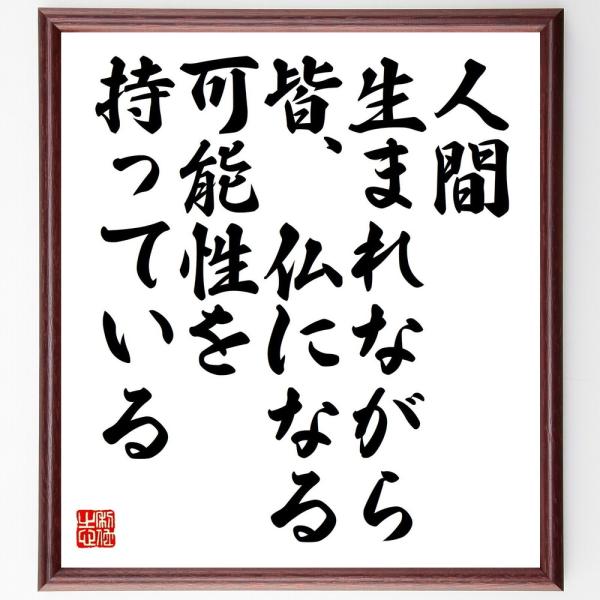 人間
生まれながら
皆、仏になる
可能性を
持っている